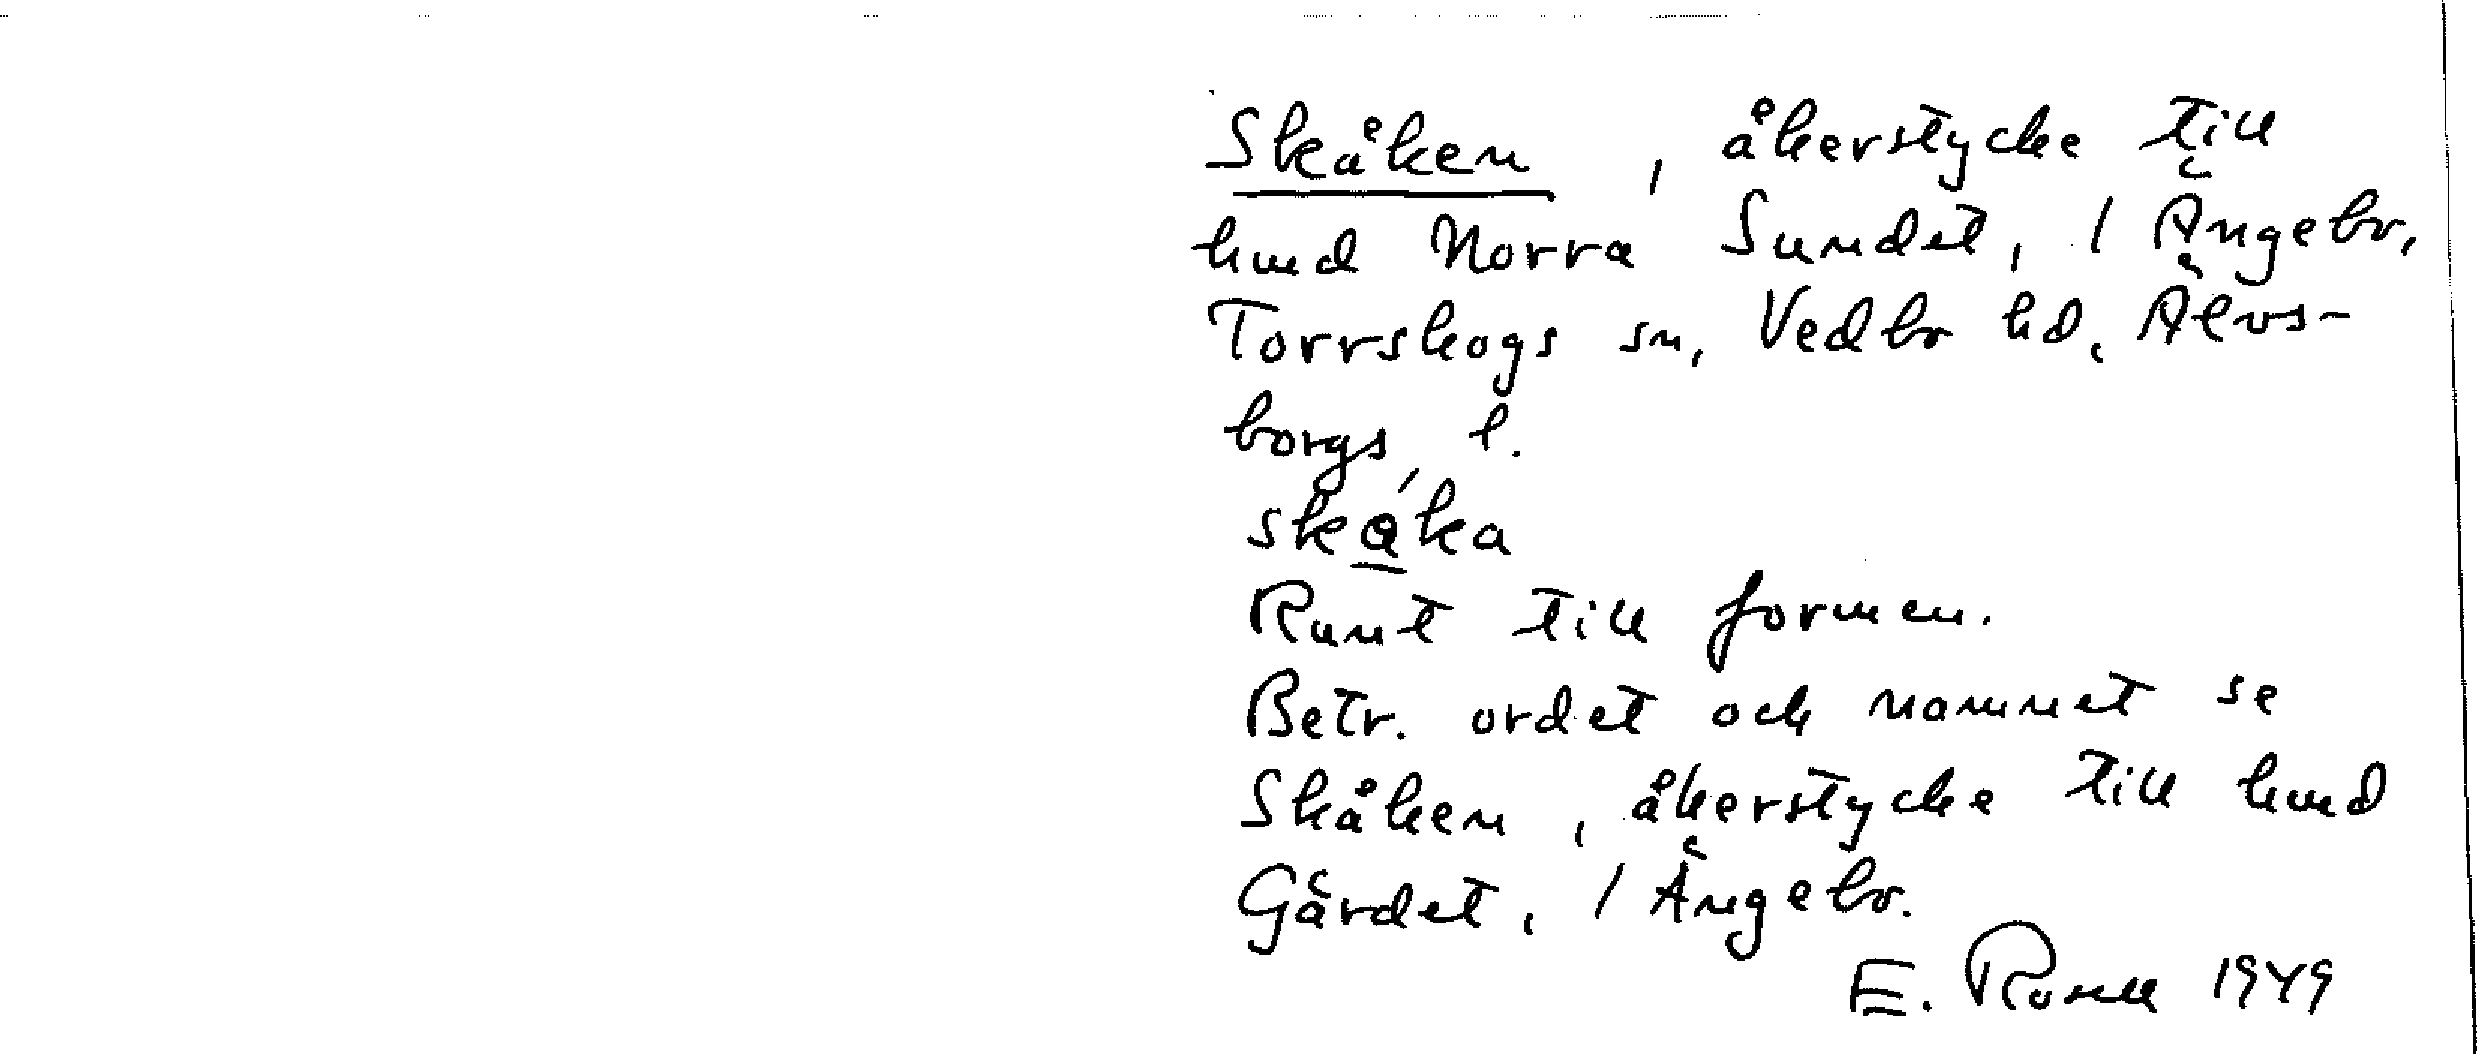 Skåken, åkerstycke till
hmd Norra Sundet, 1 Ängebo,
Torrskogs sn, Vedbo hd, Älvs-
borgs l.
skåka
Runt till formen.
Betr. ordet och namnet se
Skåken, åkerstycke till hmd
Gärdet, 1 Ängebo.
E. Rosell 1949